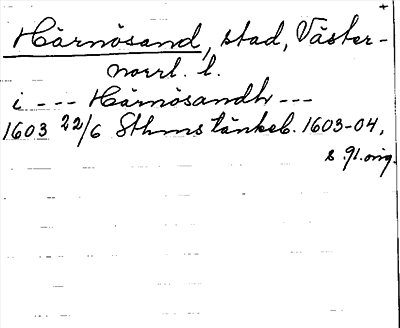 Härnösand, stad, Väster-
norrl. l.
i --- Härnösandh ---
1603 22/6 Sthms tänkeb. 1603-04,
s. 91. orig.